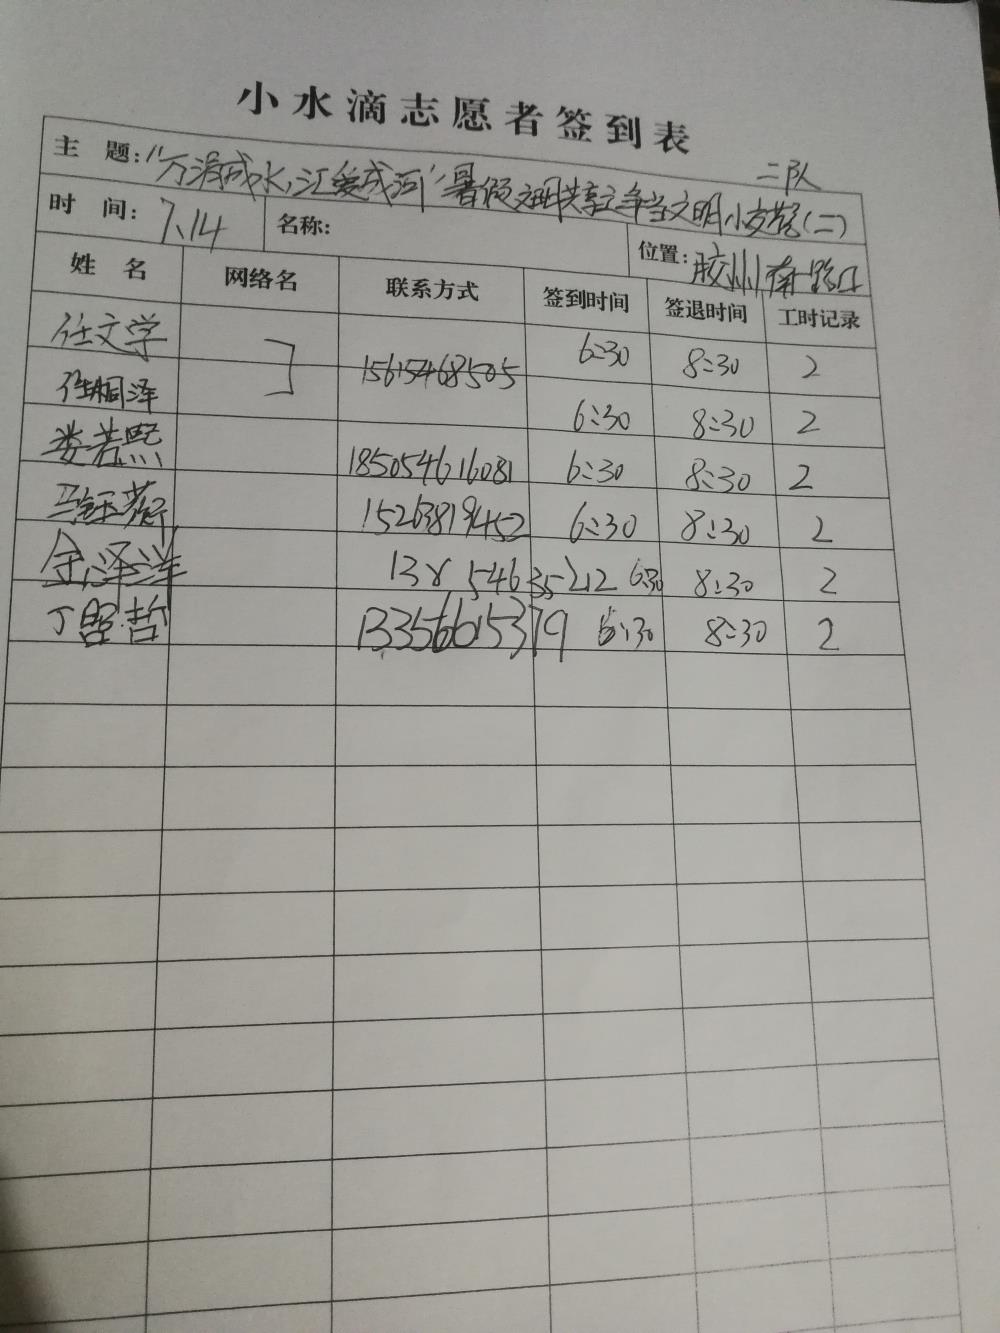 小水滴志愿者签到表
二队
主 题: "万涓成水,汇爱成河"暑假文明共享文争当文明小交警(二)
时 间: 7.14 名称: 位置: 胶州南路口
姓 名 网络名 联系方式 签到时间 签退时间 工时记录
任文学 15615468505 6:30 8:30 2
任桐泽 6:30 8:30 2
娄若熙 185054616081 6:30 8:30 2
15263819452 6:30 8:30 2
金泽洋 546 35212 6:30 8:30 2
丁照哲 13356615379 6:30 8:30 2